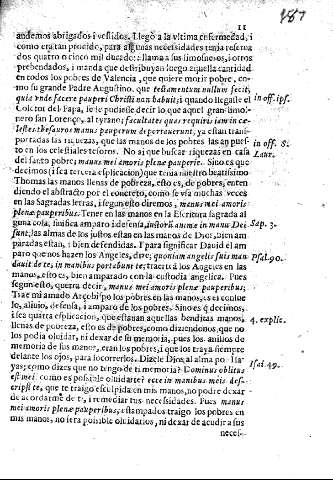 11
187
andemos abrigados i vestidos. Llegò a la vltima enfermedad, i
como era tan prouido, para algunas necessidades tenia reserua
dos quatro o cinco mil ducados: llama a sus limosneros, i otros
prebendados, i manda que destribuyan luego aquella cantidad
en todos los pobres de Valencia, que quiere morir pobre, co-
mo su grande Padre Augustino. que testamentum nullum fecit,
quia vnde faceret pauperi Christi non habuit; i quando llegasse el
in off. ips.
Coletor del Papa, se le pudiesse dezir lo que aquel gran limos-
nero san Lorenço, al tyrano; facultates quas requiris iam in cæ-
lestes thesauros manus pauperum deportauerunt, ya estan trans-
in off. S.
Laur.
portadas las riquezas, que las manos de los pobres las an pues-
to en los celestiales tesoros. No ai que buscar riquezas en casa
del santo pobre; manus mei amoris plenæ pauperie. Sino es que
decimos (i sea tercera esplicacion) que tenia nuestro beatissimo
Thomas las manos llenas de pobreza, esto es, de pobres, enten
diendo al abstracto por el concreto, como se vsa muchas veces
en las Sagradas letras, i segun esto diremos, manus mei amoris
plenæ pauperibus. Tener en las manos en la Escritura sagrada al
guna cosa, sinifica amparo i defensa, iustorũ animæ in manu Dei
Sap. 3.
sunt; las almas de los justos estan en las manos de Dios, bien am
paradas estan, i bien defendidas. I para significar Dauid el am
paro que nos hazen los Angeles, dize; quoniam angelis suis man-
Psal.90.
dauit de te, in manibus portabunt te; traerte à los Angeles en las
manos, esto es, bien amparado con la custodia angelica. Pues
segun esto, querra decir, manus mei amoris plenæ pauperibus.
Trae mi amado Arçobispo los pobres en las manos, es el consue
lo, aliuio, defensa, i amparo de los pobres. Sino es q̃ decimos,
i sea quarta esplicacion, que estauan aquellas benditas manos
4. explic.
llenas de pobreza, esto es de pobres, como diziendonos, que no
los podia oluidar, ni dexar de su memoria, pues los anillos de
memoria de sus manos, eran los pobres, i que los traya siempre
delante los ojos, para socorrerlos. Dizele Dios al alma por Isa-
yas; como dizes que no tengo de ti memoria? Dominus oblitus
Isai.49.
est mei. como es possible oluidarte? ecce in manibus meis des-
cripsi te, que te traigo esculpida en mis manos, no podre dexar
de acordarme de ti, i remediar tus necessidades. Pues manus
mei amoris plenæ pauperibus, estampados traigo los pobres en
mis manos, no sera possible oluidarlos, ni dexar de acudir a sus
neces-